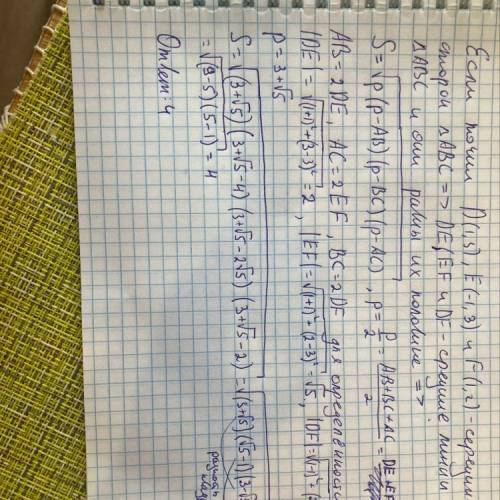 Если точки D(1,3), E(-1,3) и F(1,2) - середины
сторон △ABC => DE, EF и DF - средние линии
△ABC и они равны их половине =>
S = √(p(p-AB)(p-BC)(p-AC)), p = P/2 = (AB+BC+AC)/2 = DE+EF
AB = 2DE, AC = 2EF, BC = 2DF для определённост
|DE| = √((1+1)²+(3-3)²) = 2, |EF| = √((1+1)²+(2-3)²) = √5, |DF| = √(1-1)²+
p = 3+√5
S = √((3+√5)(3+√5-4)(3+√5-2√5)(3+√5-2)) = √(3+√5)(√5-1)(3-√5
= √((9-5)(5-1)) = 4
разность
Ответ: 4